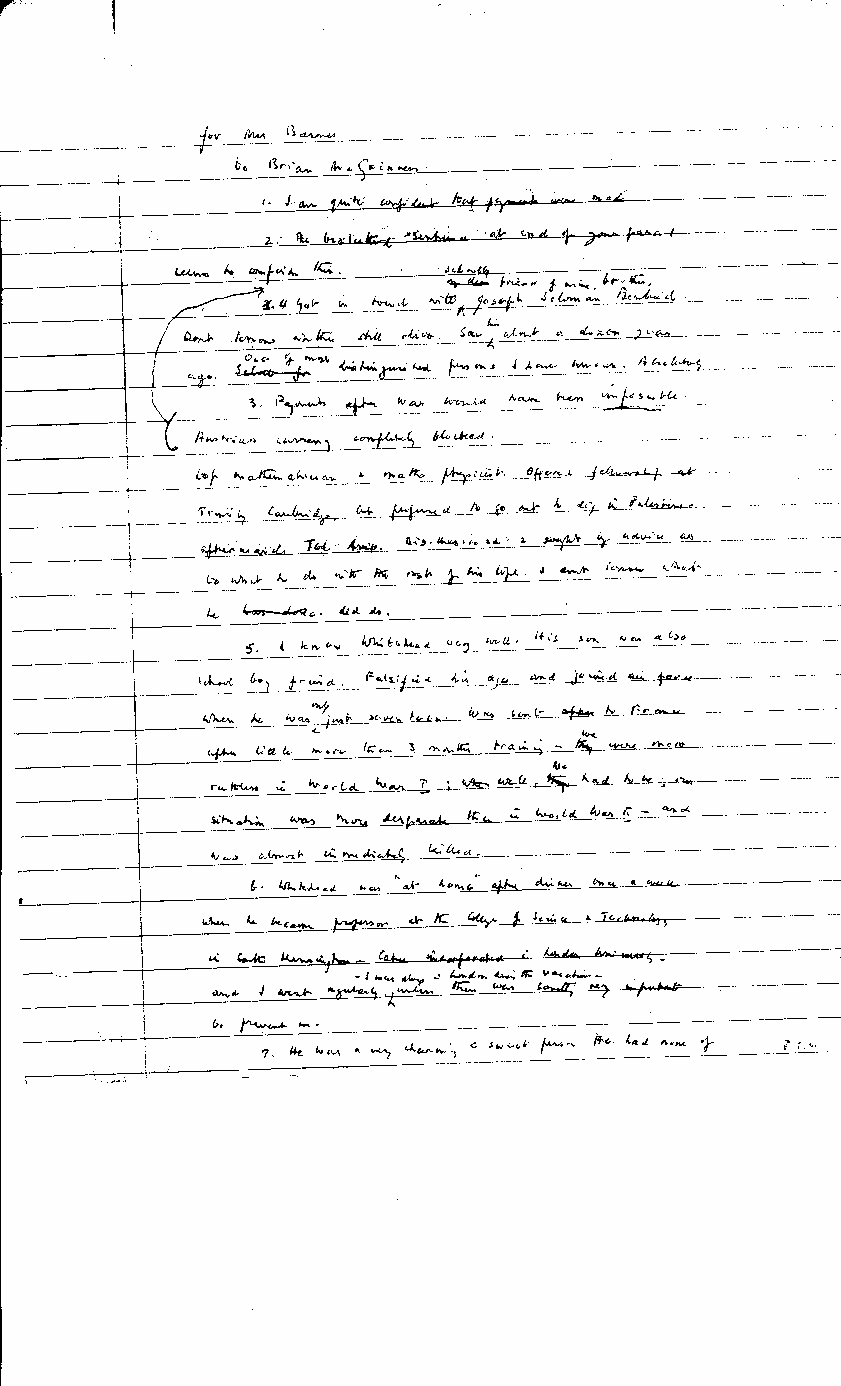 for Mrs Barnes
to Brian McGuinness
1. I am quite confident that payments were made
2. The bracketing sentence at end of your para 1
seems to confirm this.
friend of mine, but this
4 Got in touch with Joseph Soloman
Dont know whether still alive. Saw him about a dozen years
ago. One of most distinguished persons I have known. Absolutely
3. Payments after war would have been impossible.
Austrian currency completely blocked.
top mathematician & maths physicist. Offered fellowship at
Trinity Cambridge, but preferred to go out to dig in Palestine
afterwards. Disillusioned & sought my advice as
to what to do with the rest of his life. I dont know what
he was doing. did do.
5. I knew Whitehead very well. His son was also
school boy friend. Falsified his age and joined air force
when he was only just seventeen. Was sent to France
after little more than 3 months training - we were more
ruthless in World War I; well, we had to be, our
situation was more desperate than in World War II - and
was almost immediately killed.
6. Whitehead was "at home" after dinner once a week
when he became professor at the College of Science & Technology
in South Kensington - later incorporated in London University -
- I was always in London during the vacation -
and I went regularly, unless there was something very important
to prevent me.
7. He was a very charming & sweet person He had none of
P.T.O.